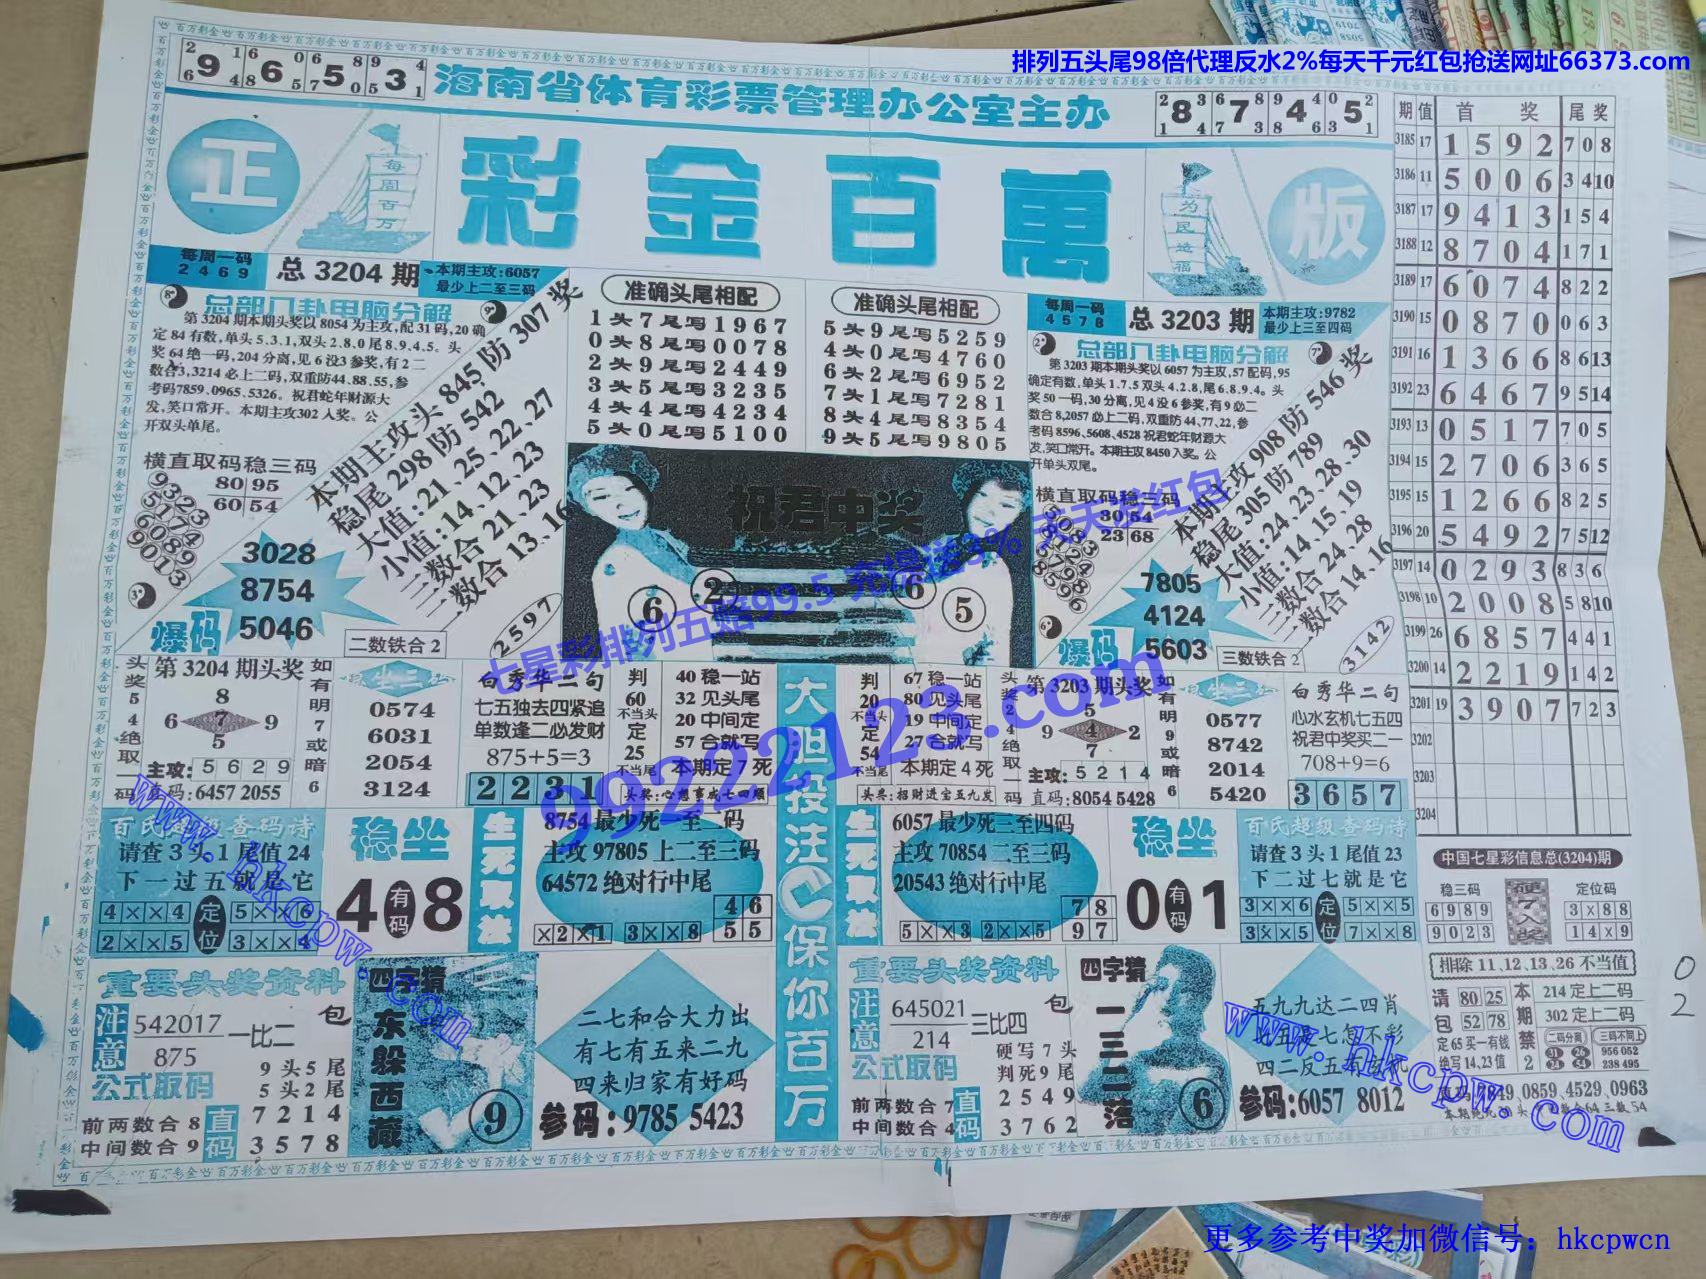 排列五头尾98倍代理反水2%每天千元红包抢送网址66373.com
海南省体育彩票管理办公室主办
正
彩金百萬
版
每周百万
为民造福
每周一码
2469
总3204期
本期主攻:6057
最少上二至三码
总部八卦电脑分解
第3204期本期头奖以8054为主攻,配31码,20确
定84有数,单头5.3.1,双头2.8.0尾8.9.4.5。头
奖64绝一码,204分离,见6没3参奖,有2二
数合3,3214必上二码,双重防44.88.55,参
考码7859.0965.5326。祝君蛇年财源大
发,笑口常开。本期主攻302入奖。公
开双头单尾。
横直取码稳三码
80 95
60 54
本期主攻头845防307奖
稳尾298防542
大值:21、25、22、27
小值:14、12、23
三数合21、23
二数合13、16
3028
8754
5046
爆码
二数铁合2
2597
准确头尾相配
1头7尾写1967
0头8尾写0078
2头9尾写2449
3头5尾写3235
4头4尾写4234
5头0尾写5100
准确头尾相配
5头9尾写5259
4头0尾写4760
6头2尾写6952
7头1尾写7281
8头4尾写8354
9头5尾写9805
祝君中奖
6 2 6 5
每周一码
4578
总3203期
本期主攻:9782
最少上三至四码
总部八卦电脑分解
第3203期本期头奖以6057为主攻,57配码,95
确定有数,单头1.7.5双头4.2.8,尾6.8.9.4。头
奖50一码,30分离,见4没6参奖,有9必二
数合8,2057必上二码,双重防44,77,22,参
考码8596、5608、4528祝君蛇年财源大
发,笑口常开。本期主攻8450入奖。公
开单头双尾。
横直取码稳三码
30 54
23 68
本期主攻908防546奖
稳尾305防789
大值:24、23、28、30
小值:14、15、19
三数合24、28
二数合14、16
7805
4124
5603
爆码
三数铁合2
3142
头奖54绝取一码
第3204期头奖
8
6 7 9
5
主攻:5629
直码:6457 2055
如有明7或暗6
稳坐三码
0574
6031
2054
3124
白秀华二句
七五独去四紧追
单数逢二必发财
875+5=3
2231
判60不当头
定25不当尾
40稳一站
32见头尾
20中间定
57合就写
本期定7死
头奖:心想事成七四顺
大胆投注保你百万
判20不当头
定54不当尾
67稳一站
80见头尾
19中间定
27合就写
本期定4死
头奖:招财进宝五九发
头奖24绝取一码
第3203期头奖
5
9 4 2
7
主攻:5214
直码:8054 5428
如有明9或暗6
稳坐三码
0577
8742
2014
5420
白秀华二句
心水玄机七五四
祝君中奖买二一
708+9=6
3657
百氏超级查码诗
请查3头1尾值24
下一过五就是它
4××4 定 5××6
2××5 位 3××4
稳坐
4有码8
生死取法
8754最少死一至二码
主攻97805上二至三码
64572绝对行中尾
×2×1 3××8
46
55
生死取法
6057最少死三至四码
主攻70854二至三码
20543绝对行中尾
5××3 2××5
78
97
稳坐
0有码1
百氏超级查码诗
请查3头1尾值23
下二过七就是它
3××6 定 5××5
3××5 位 7××8
重要头奖资料
注意
542017
875
一比二 包
公式取码
9头5尾
5头2尾
前两数合8
中间数合9
直码
7214
3578
四字猜
东躲西藏
9
二七和合大力出
有七有五来二九
四来归家有好码
参码:9785 5423
重要头奖资料
注意
645021
214
三比四 包
公式取码
硬写7头
判死9尾
前两数合7
中间数合4
直码
2549
3762
四字猜
一三二落
6
五九九达二四肖
参码:6057 8012
期 值 首奖 尾奖
3185 17 1592 708
3186 11 5006 3410
3187 17 9413 154
3188 12 8704 171
3189 17 6074 822
3190 15 0870 063
3191 16 1366 8613
3192 23 6467 9514
3193 13 0517 705
3194 15 2706 365
3195 15 1266 825
3196 20 5492 7512
3197 14 0293 836
3198 10 2008 5810
3199 26 6857 441
3200 14 2219 142
3201 19 3907 723
3202
3203
3204
中国七星彩信息总(3204)期
稳三码
6989
9023
硬7入奖
定位码
3×88
14×9
排除11、12、13、26不当值
请包
80 25
52 78
定65买一有钱
绝写14,23值
本期禁2
214定上二码
302定上二码
二码分离
三码不同上
956 052
238 495
02
七星彩排列五赔99.5 充提送3% 天天发红包
99222123.com
www.hkcpw.com
www.hkcpw.com
更多参考中奖加微信号：hkcpwcn